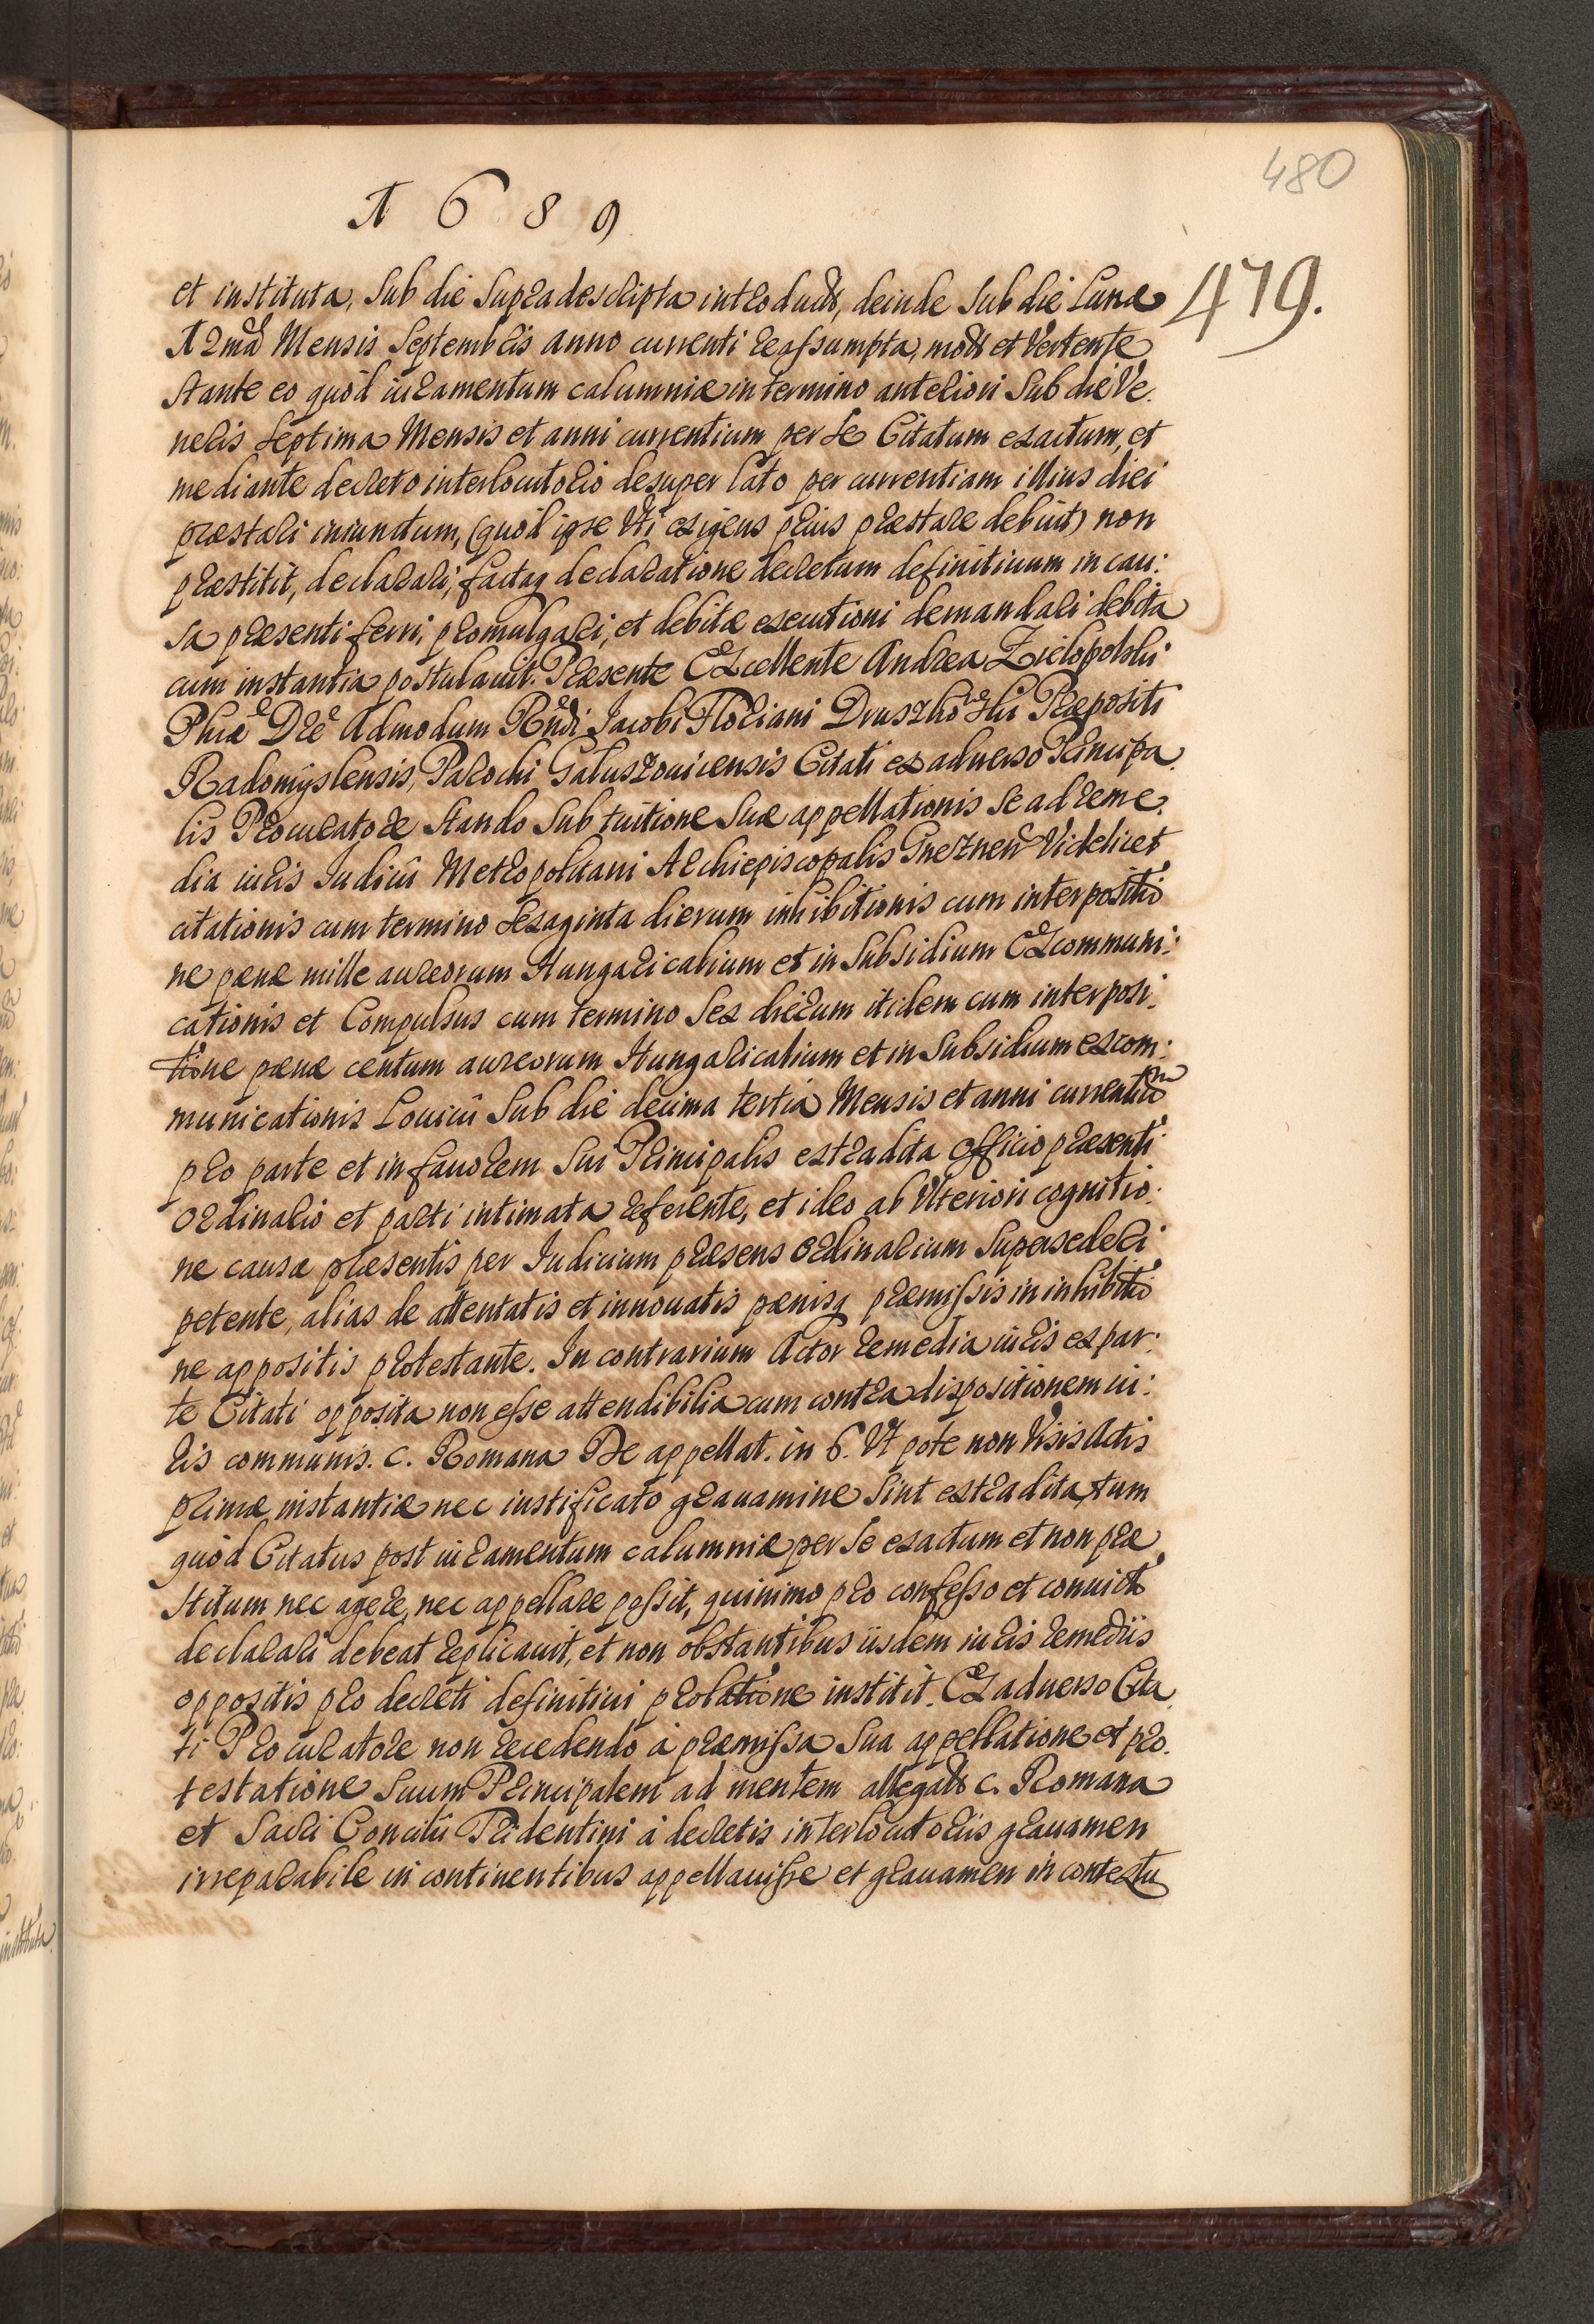 480
1689
479.
et instituta, sub die supradescripta introducta, deinde sub die Lunæ
12mâ Mensis Septembris anno currenti reassumpta, mota et vertente
stante eo quòd iuramentum calumniæ in termino anteriori sub die Ve.
neris septima Mensis et anni currentium per se Citatum exactum, et
mediante decreto interlocutorio desuper lato per currentiam illius diei
præstari iniunctum, (quòd ipse Uti exigens prius præstare debuit) non
præstitit, declarari, factaq declaratione decretum definitiuum in cau:
sa præsenti ferri, promulgari, et debitæ executioni demandari debita
cum instantia postulauit. Præsente Excellente Andrea Zielopolski
Phiæ Dre Admodum Rndi Jacobi Floriani Druszkowski Præpositi
Radomyslensis, Parochi Galuszouicensis Citati ex aduerso Principa.
lis Procuratore stando sub tuitione suæ appellationis se ad reme.
dia iuris Iudicii Metropolitani Archiepiscopalis Gneznen Videlicet
citationis cum termino sexaginta dierum inhibitionis cum interpositio
ne pænæ mille aureorum Hungaricalium et in subsidium Excommuni:
cationis et Compulsus cum termino sex dierum itidem cum interposi.
tione pænæ centum aureorum Hungaricalium et in subsidium excom:
municationis Louicii sub die decima tertia Mensis et anni currentium
pro parte et in fauorem sui Principalis extradita Officio præsenti
Ordinario et parti intimata referente, et ideo ab Ulteriori cognitio:
ne causæ præsentis per Iudicium præsens Ordinarium supersederi
petente, alias de attentatis et innouatis pænisq præmissis in inhibitio
ne appositis protestante. In contrarium Actor remedia iuris ex par:
te Citati opposita non esse attendibilia cum contra dispositionem iu:
ris communis. c. Romana De appellat. in 6. Ut pote non Visis Actis
primæ instantiæ nec iustificato grauamine sint extradita, tum
quòd Citatus post iuramentum calumniæ per se exactum et non præ
stitum nec agere, nec appellare possit, quinimo pro confesso et conuicto
declarari debeat replicauit, et non obstantibus iisdem iuris remediis
oppositis pro decreti definitiui prolatione institit. Ex aduerso Cita
ti Procuratore non recedendo à præmissa sua appellatione et pro.
testatione suum Principalem ad mentem allegato c. Romana
et Sacri Concilii Tridentini à decretis interlocutoriis grauamen
irreparabile in continentibus appellauisse et grauamen in contextu